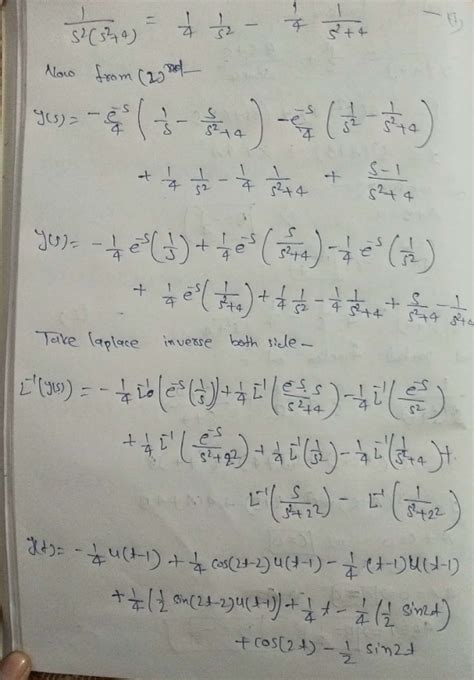 1/(s²(s²+4)) = 1/4 1/s² - 1/4 1/(s²+4)
Now from (2)
y(s) = -e^-s/4 (1/s - s/(s²+4)) - e^-s/4 (1/s² - 1/(s²+4))
+ 1/4 1/s² - 1/4 1/(s²+4) + (s-1)/(s²+4)
y(s) = -1/4 e^-s (1/s) + 1/4 e^-s (s/(s²+4)) - 1/4 e^-s (1/s²)
+ 1/4 e^-s (1/(s²+4)) + 1/4 1/s² - 1/4 1/(s²+4) + s/(s²+4) - 1/(s²+4)
Take laplace inverse both side -
L^-1(y(s)) = -1/4 L^-1(e^-s(1/s)) + 1/4 L^-1(e^-s s/(s²+4)) - 1/4 L^-1(e^-s/s²)
+ 1/4 L^-1(e^-s/(s²+2²)) + 1/4 L^-1(1/s²) - 1/4 L^-1(1/(s²+4)) +
L^-1(s/(s²+2²)) - L^-1(1/(s²+2²))
y(t) = -1/4 u(t-1) + 1/4 cos(2t-2) u(t-1) - 1/4 (t-1) u(t-1)
+ 1/4 (1/2 sin(2t-2) u(t-1)) + 1/4 t - 1/4 (1/2 sin2t)
+ cos(2t) - 1/2 sin2t